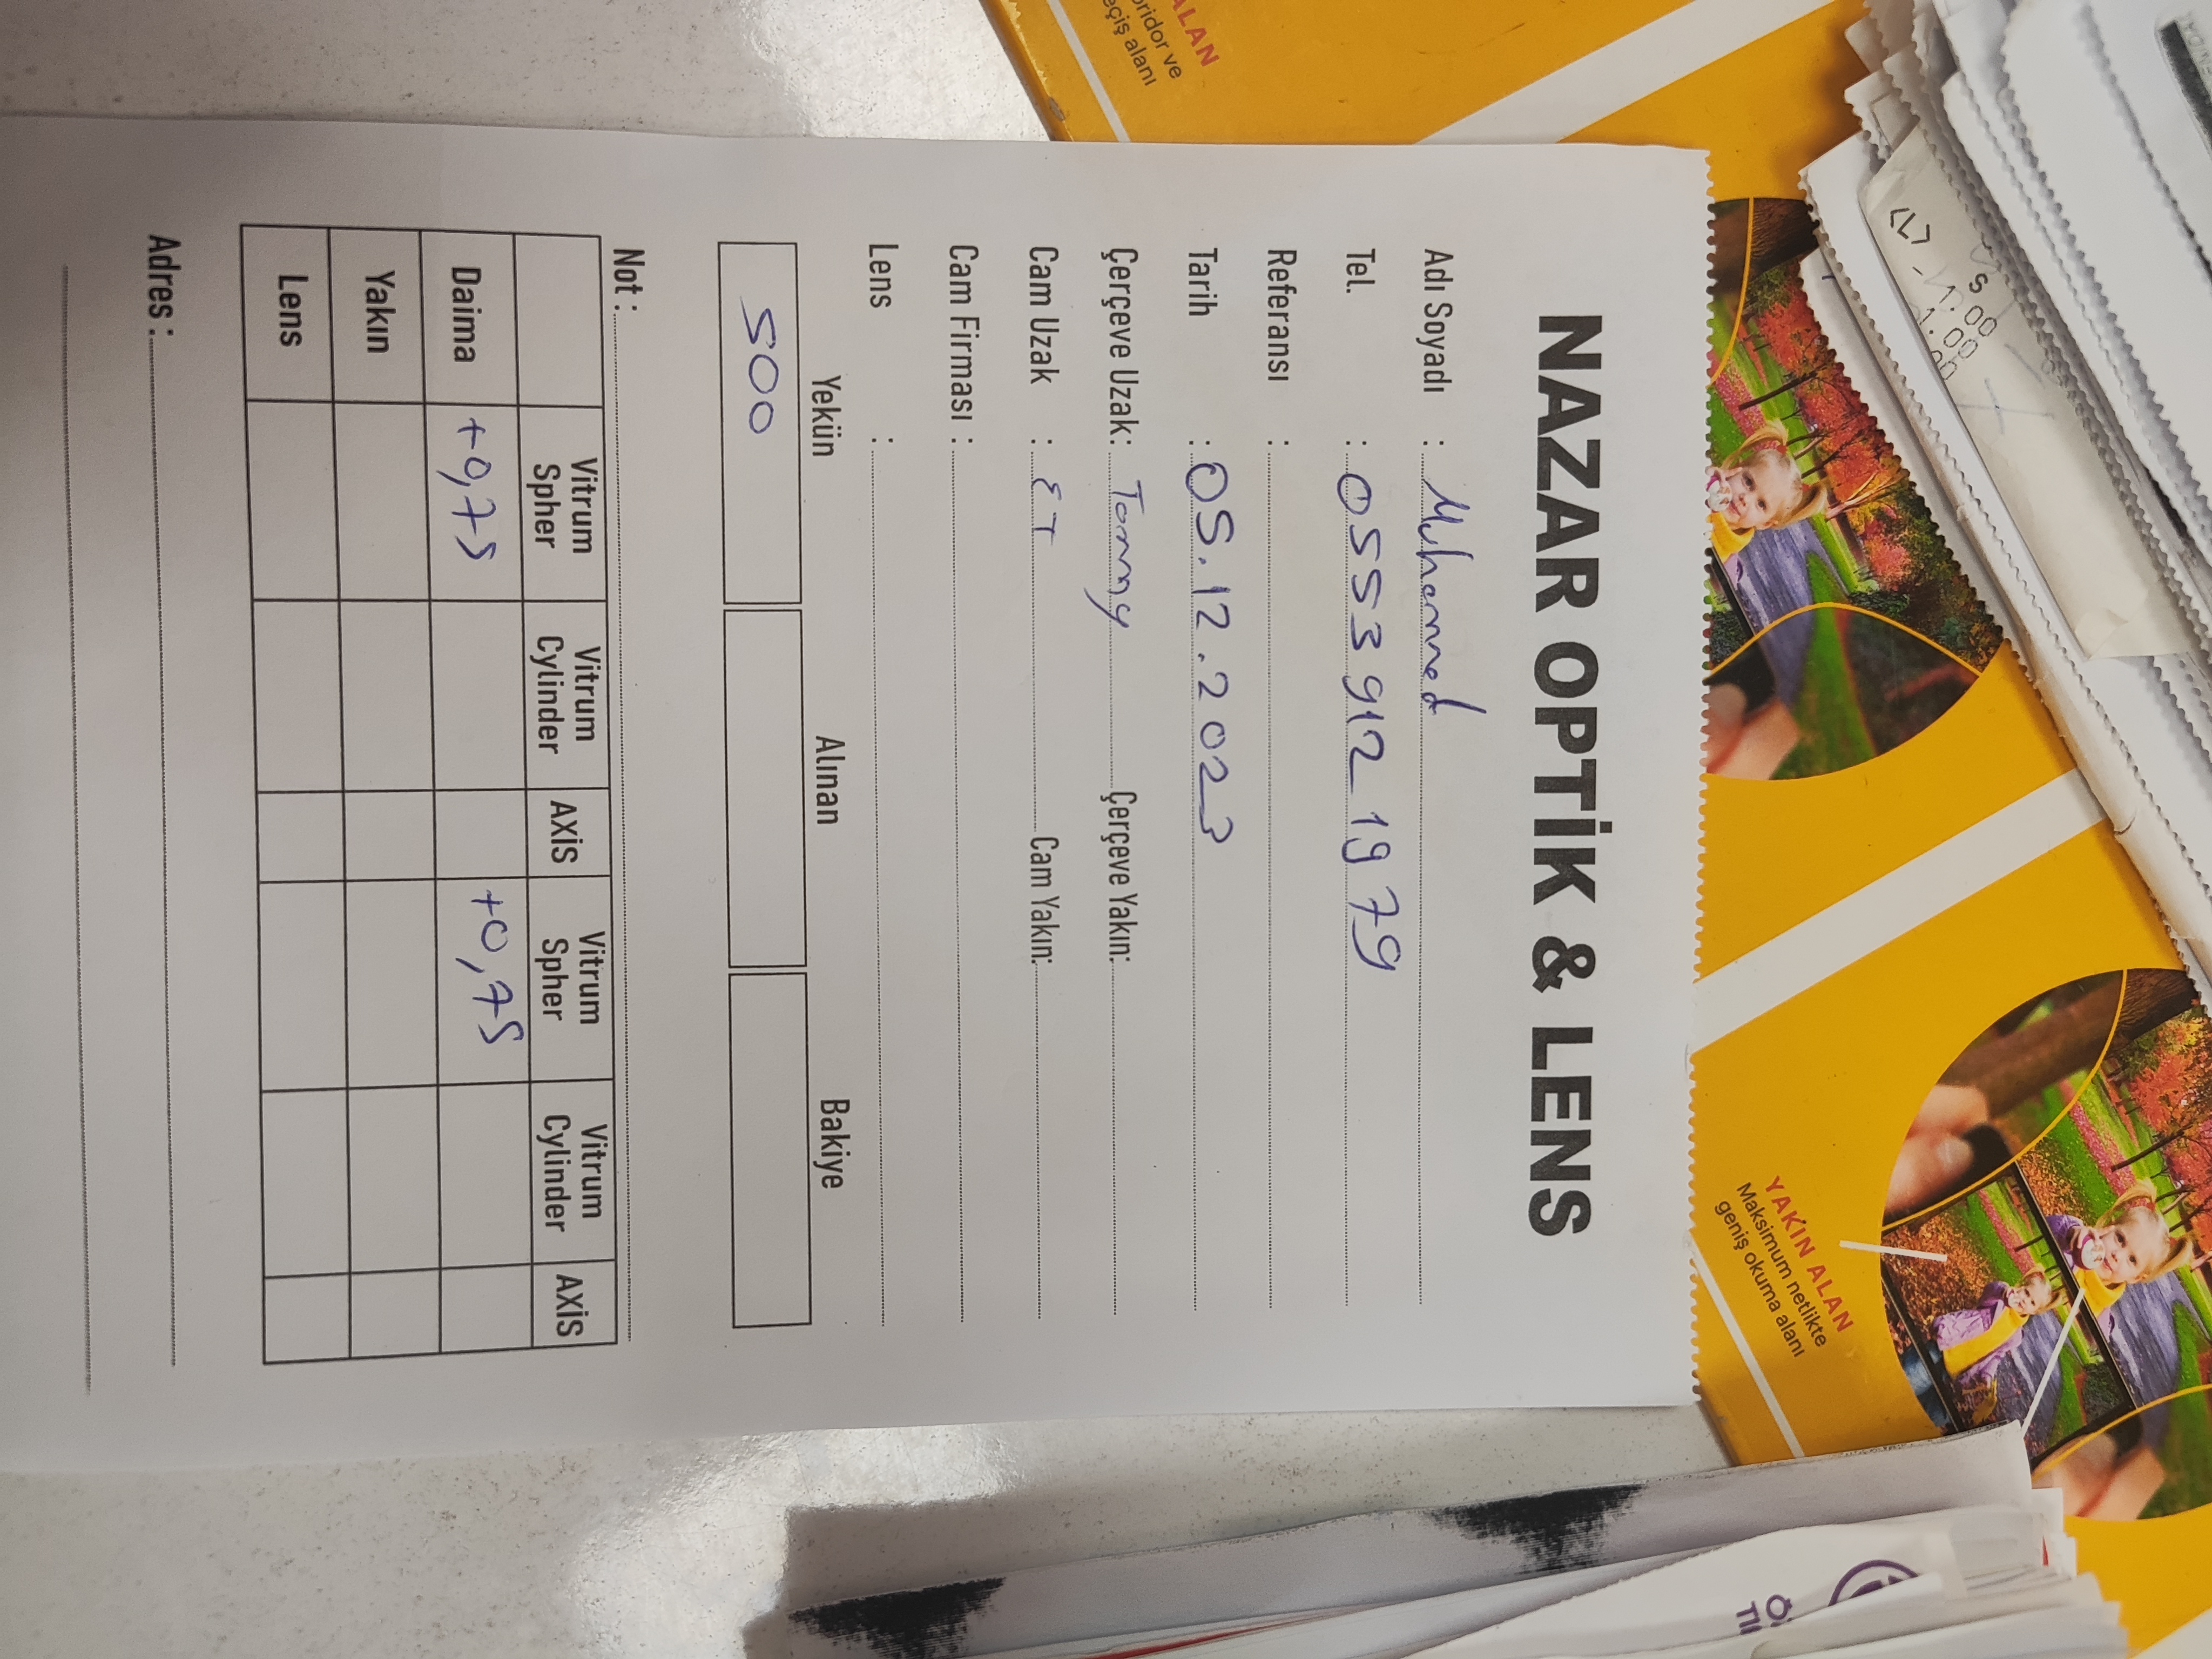 NAZAR OPTİK & LENS
Adı Soyadı : Muhammed
Tel. : 0553 912 19 79
Referansı :
Tarih : 05.12.2023
Çerçeve Uzak: Tommy Çerçeve Yakın:
Cam Uzak : ET Cam Yakın:
Cam Firması :
Lens :
Yekün Alınan Bakiye
500
Not :
Vitrum Spher Vitrum Cylinder AXİS Vitrum Spher Vitrum Cylinder AXİS
Daima +0,75 +0,75
Yakın
Lens
Adres :
ALAN
oridor ve
eçiş alanı
YAKIN ALAN
Maksimum netlikte
geniş okuma alanı
<L>
S
1.00
1.00